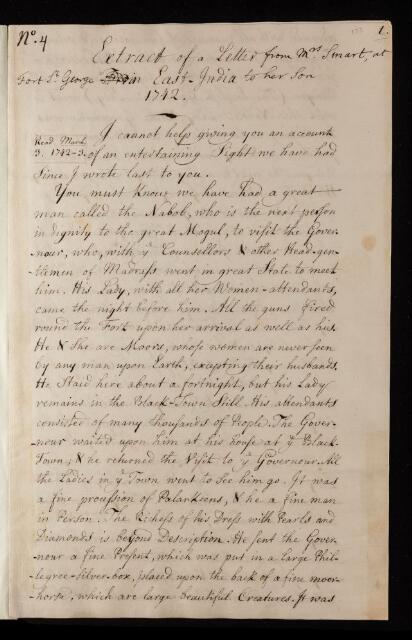 No. 4
1.
Extract of a Letter from Mrs Smart, at
Fort St. George in East-India to her Son
1742.
Read March
3. 1742-3.
I cannot help giving you an account
of an entertaining Sight we have had
Since I wrote last to you.
You must know we have had a great
man called the Nabob, who is the next person
in dignity to the great Mogul, to visit the Gover-
-nour, who, with ye Counsellors & other Head-gen-
-tlemen of Madrass went in great State to meet
him. His Lady, with all her Women-attendants,
came the night before him. All the guns fired
round the Fort upon her arrival as well as his.
He & She are Moors, whose women are never seen
by any man upon Earth, excepting their husbands.
He Staid here about a fortnight, but his Lady
remains in the Black-Town Still. His attendants
consisted of many thousands of People. The Gover-
-nour waited upon him at his house at ye Black-
Town; & he returned the Visit to ye Governeur. All
the Ladies in ye Town went to See him go. It was
a fine procession of Palankeens, & he a fine man
in Person. The Richess of his Dress with Pearls and
Diamonds is beyond Description. He Sent the Gover-
nour a fine Present, which was put in a large Phil-
-legree-Silver-box, placed upon the back of a fine moor-
-horse, which are large beautiful Creatures. It was